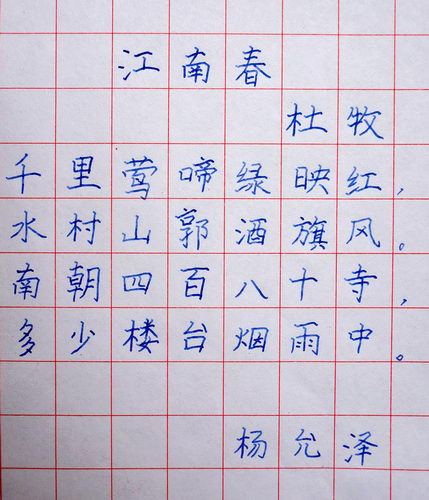 江南春
杜牧
千里莺啼绿映红，
水村山郭酒旗风。
南朝四百八十寺，
多少楼台烟雨中。
杨允泽